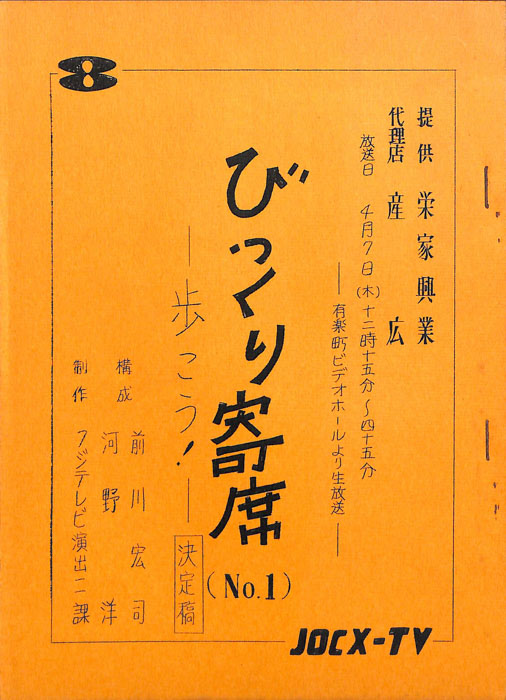 8
提供 栄家興業
代理店 産広
放送日 4月7日(木)十二時十五分〜四十五分
―有楽町ビデオホールより生放送―
びっくり寄席
(No.1)
―歩こう!―
決定稿
構成 前川宏司
河野洋
制作 フジテレビ演出二課
JOCX-TV